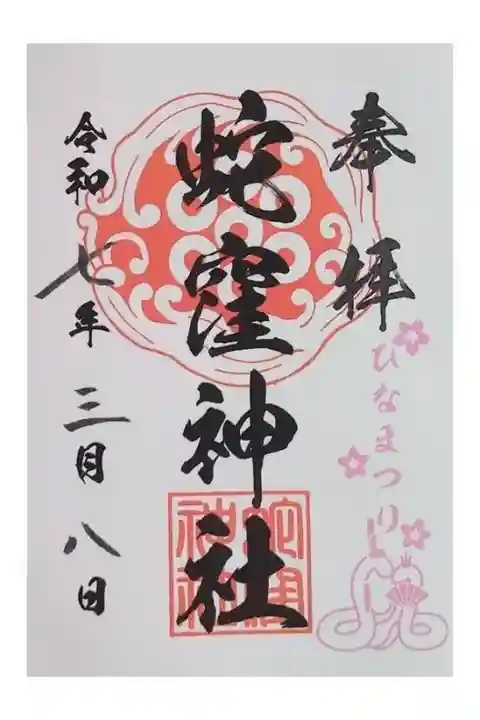 奉拝
ひなまつり
蛇窪神社
蛇窪
神社
令和七年三月八日